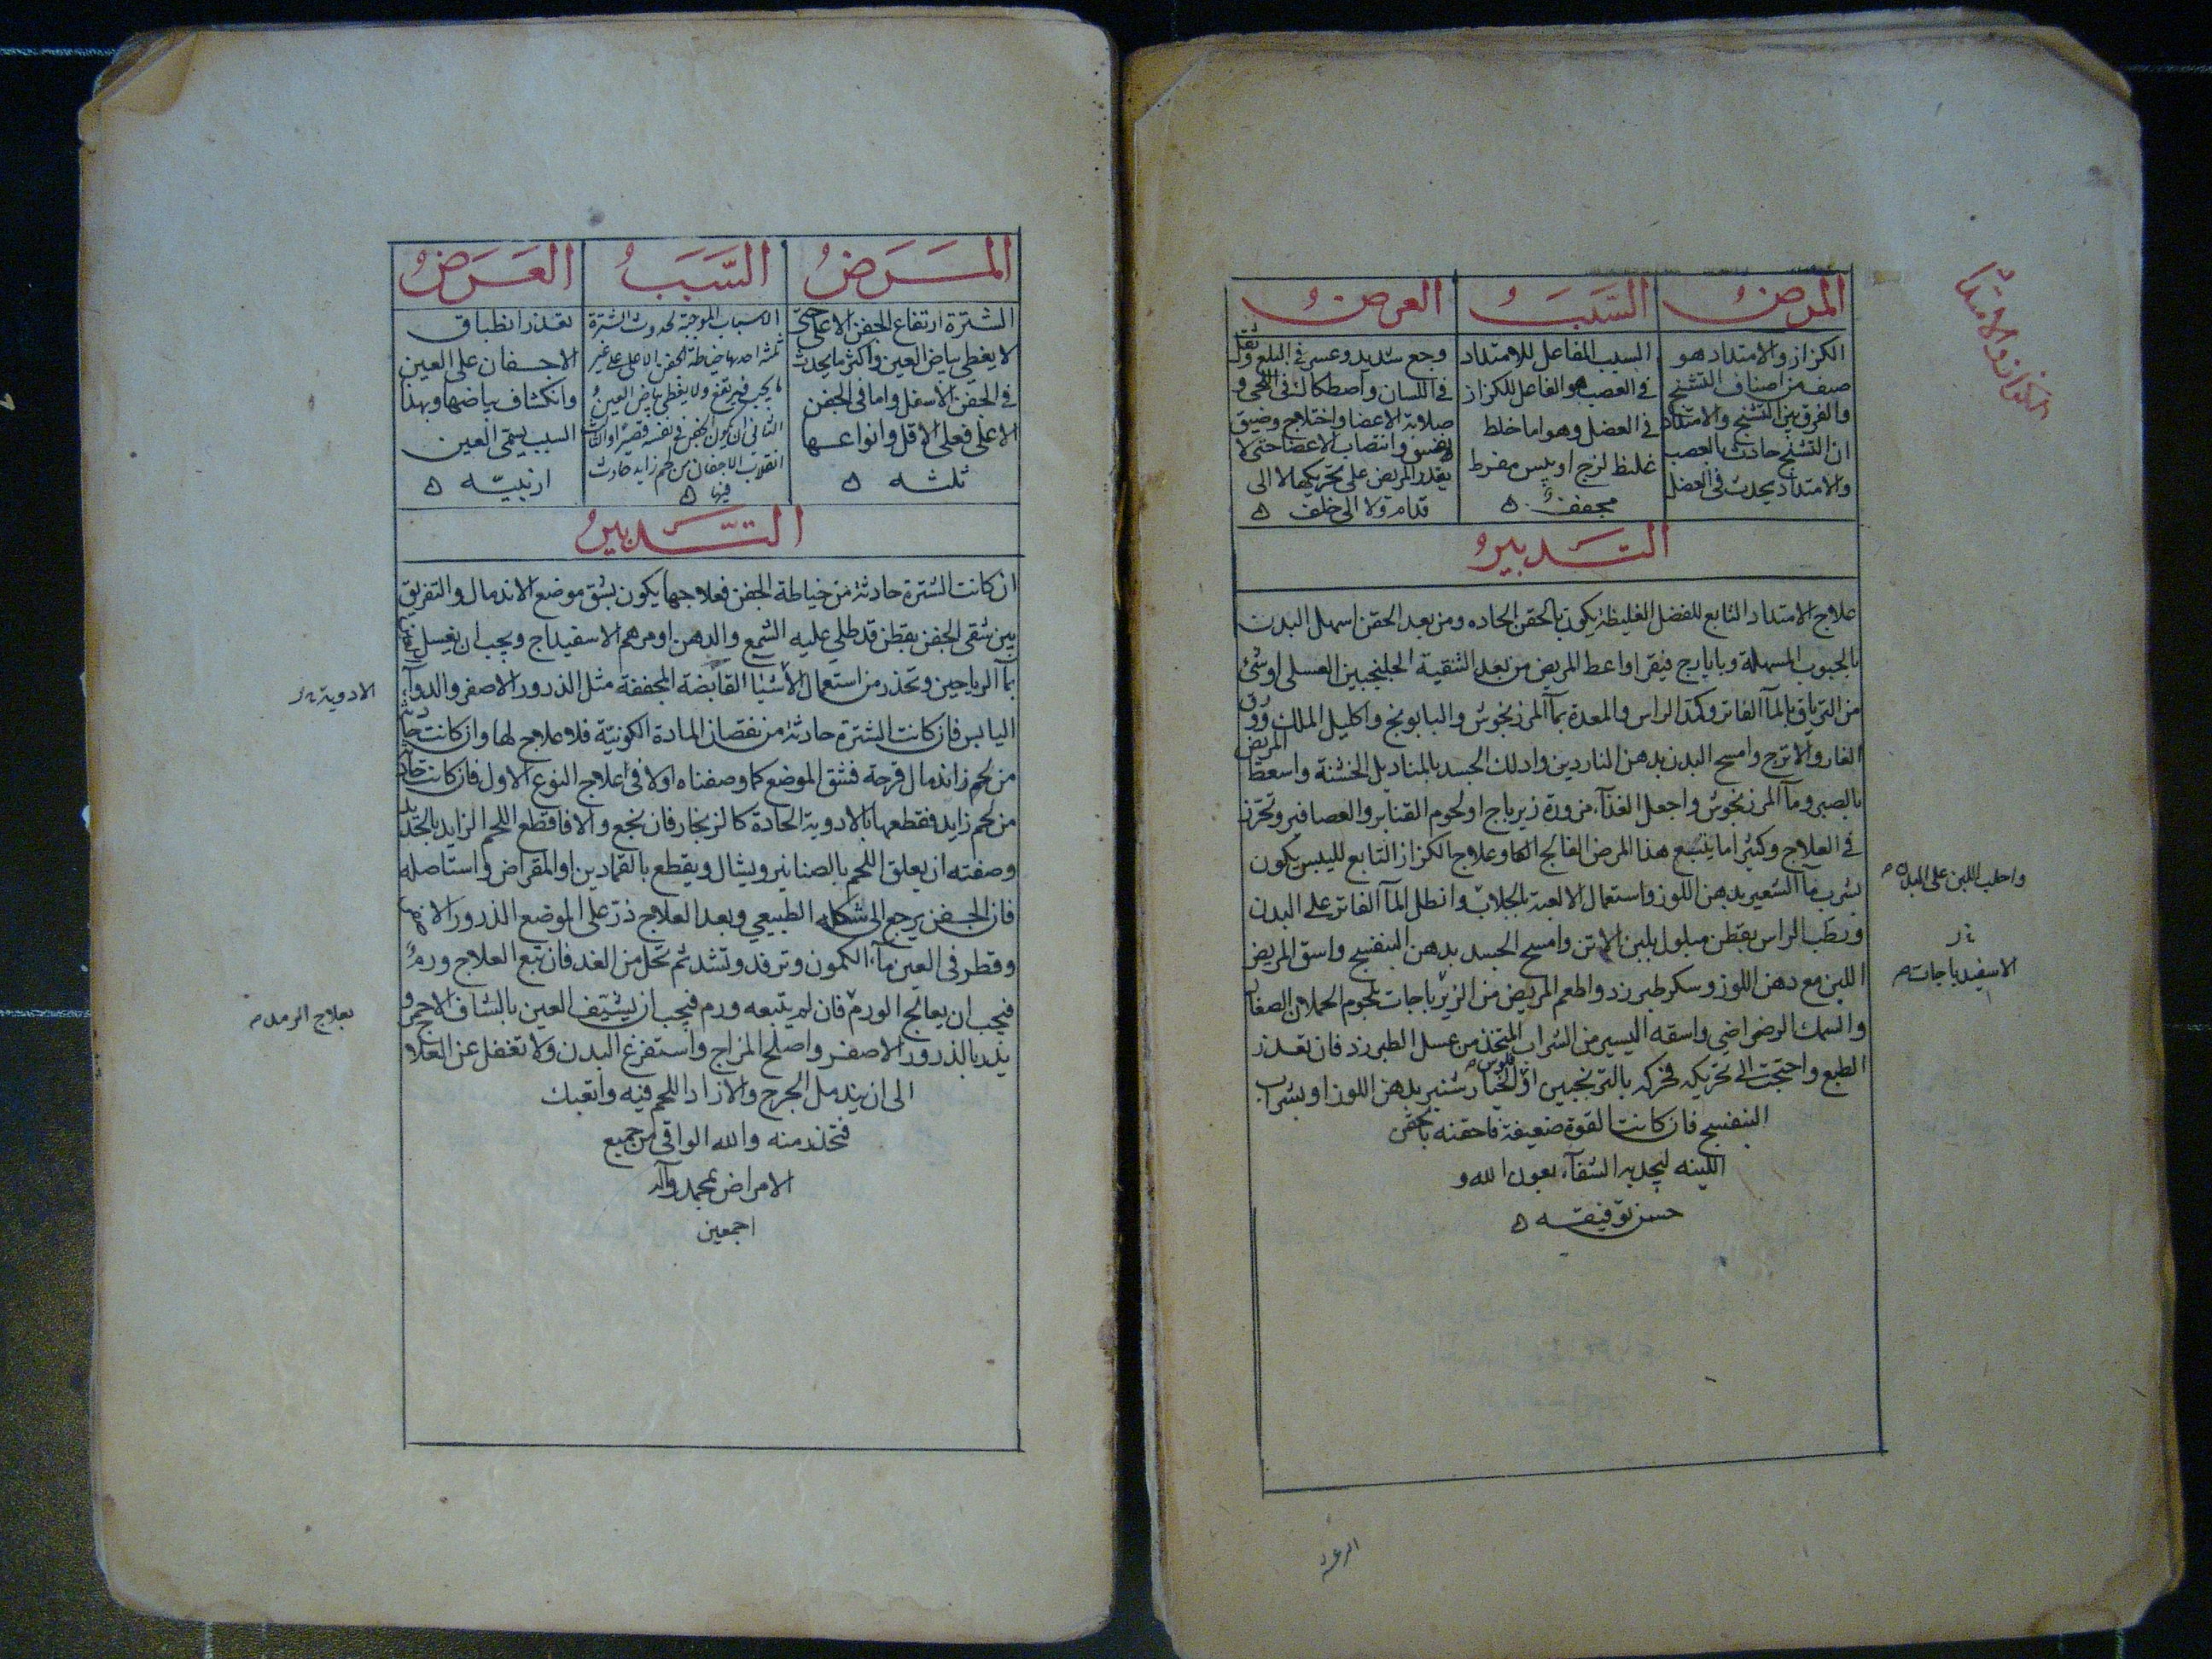 الكزاز والامتداد
المرض
السبب
العرض
الكزاز والامتداد هو
صنف من اصناف التشنج
والفرق بين التشنج والامتداد
ان التشنج حادث بالعصب
والامتداد يحدث فى العضل
السبب الفاعل للامتداد
فى العصب هو الفاعل للكزاز
فى العضل وهو اما خلط
غليظ لزج او يبس مفرط
مجفف
وجع شديد وعسر فى البلع وثقل
فى اللسان واصطكاك فى اللحى و
صلابة الاعضا واختلاج وضيق
نفس وانتصاب الاعضا حتى لا
يقدر المريض على تحريكها لا الى
قدام ولا الى خلف
التدبير
علاج الامتداد التابع للفضل الغليظة يكون بالحقن الحاده ومن بعد الحقن اسهل البدن
بالحبوب المسهلة وبايارج فيقرا واعط المريض من بعد التنقية الجلنجبين العسلى او شئ
من الترياق بالمآ الفاتر وكمّد الراس والمعدة بمآ المرزنجوش والبابونج واكليل الملك وورق
الغار والاترج وامسح البدن بدهن الناردين وادلك الجسد بالمناديل الخشنة واسعط المريض
بالصبر ومآ المرزنجوش واجعل الغذآء مزورة زيرباج او لحوم القنابر والعصافير وتحرّز
فى العلاج وكثيرا ما يتبع هذا المرض الفالج وعلاج الكزاز التابع لليبس يكون
بشرب مآ الشعير بدهن اللوز واستعمال الالعبة بالجلاب وانطل المآ الفاتر على البدن
واحلب اللبن على البدن
ورطب الراس بقطن مبلول بلبن الاتن وامسح الجسد بدهن البنفسج واسق المريض
اللبن مع دهن اللوز وسكر طبرزد واطعم المريض من الزيرباجات بلحوم الحملان الصغار
الاسفيدباجات
والسمك الرضراضي واسقه اليسير من الشراب المتخذ من عسل الطبرزد فان تعذر
الطبع واحتجت الى تحريكه فحركه بالترنجبين او فلوس الخيار شنبر بدهن اللوز او بشراب
البنفسج فان كانت القوة ضعيفة فاحقنه بالحقن
اللينه ليجد به الشفآء بعون الله و
حسن توفيقه
الرعشه
المرض
السبب
العرض
الشترة ارتفاع الجفن الاعلى حتى
لا يغطي بياض العين واكثر ما يحدث
فى الجفن الاسفل واما فى الجفن
الاعلى فعلى الاقل وانواعها
ثلثه
الاسباب الموجبة لحدوث الشترة
ثلثة احدها خياطة الجفن الاعلى على غير
ما يجب فيرتفع ولا يغطي بياض العين و
الثانى ان يكون الجفن فى نفسه قصيرا والثالث
انقلاب الاجفان من لحم زايد حادث
فيها
تعذر انطباق
الاجفان على العين
وانكشاف بياضها وبهذا
السبب يسمّى العين
ارنبيّه
التدبير
ان كانت الشترة حادثة من خياطة الجفن فعلاجها يكون بشق موضع الاندمال والتفريق
بين شقى الجفن بقطن قد طلي عليه الشمع والدهن او مرهم الاسفيداج ويجب ان يغسل
بمآ الرياحين وتحذر من استعمال الاشيا القابضة المجففة مثل الذرور الاصفر والدوآء
الادوية
اليابس فان كانت الشترة حادثة من نقصان المادة الكونيّة فلا علاج لها وان كانت حادثة
من لحم زاندمال قرحة فشق الموضع كما وصفناه اولا فى علاج النوع الاول فان كانت حادثة
من لحم زايد فقطعها بالادوية الحادة كالزنجار فان نجع والا فاقطع اللحم الزايد بالحديد
وصفته ان يعلق اللحم بالصنانير ويشال ويقطع بالقمادين او المقراض واستاصله
فان الجفن يرجع الى شكله الطبيعي وبعد العلاج ذرّ على الموضع الذرور الاصفر
وقطر فى العين مآء الكمون وترفد وتشد ثم تحل من الغد فان تبع العلاج ورم
فيجب ان يعالج الورم فان لم يتبعه ورم فيجب ان يشيّف العين بالشاف الاحمر و
بعلاج الرمد
يذر بالذرور الاصفر واصلح المزاج واستفرغ البدن ولا تغفل عن العلاج
الى ان يندمل الجرح والا زاد اللحم فيه واتعبك
فتحذر منه والله الواقى من جميع
الامراض بمحمد وآله
اجمعين